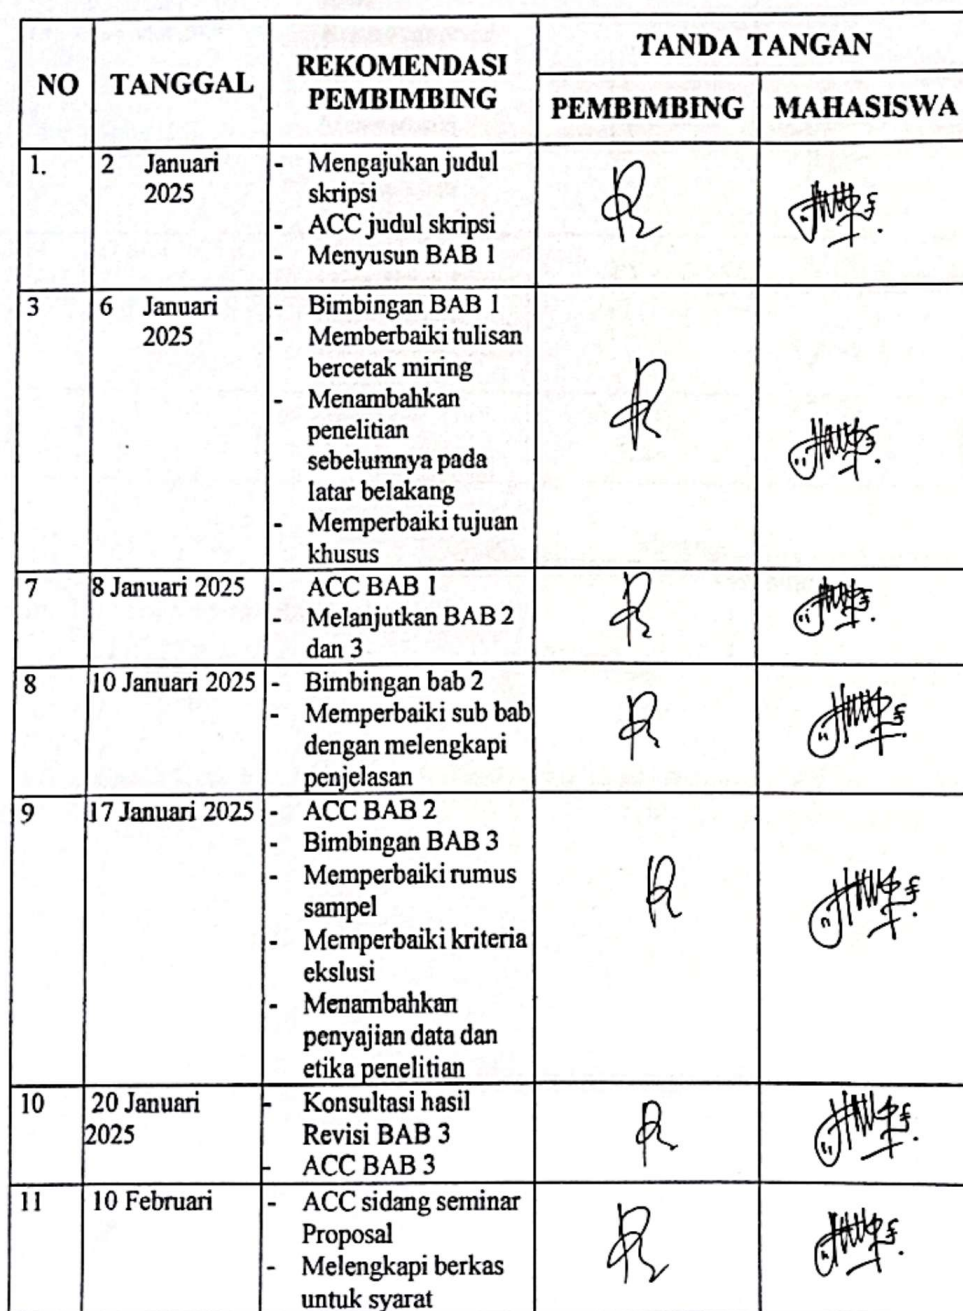 NO TANGGAL REKOMENDASI PEMBIMBING TANDA TANGAN
PEMBIMBING MAHASISWA
1. 2 Januari - Mengajukan judul
2025 skripsi
- ACC judul skripsi
- Menyusun BAB 1
3 6 Januari - Bimbingan BAB 1
2025 - Memberbaiki tulisan
bercetak miring
- Menambahkan
penelitian
sebelumnya pada
latar belakang
- Memperbaiki tujuan
khusus
7 8 Januari 2025 - ACC BAB 1
- Melanjutkan BAB 2
dan 3
8 10 Januari 2025 - Bimbingan bab 2
- Memperbaiki sub bab
dengan melengkapi
penjelasan
9 17 Januari 2025 - ACC BAB 2
- Bimbingan BAB 3
- Memperbaiki rumus
sampel
- Memperbaiki kriteria
ekslusi
- Menambahkan
penyajian data dan
etika penelitian
10 20 Januari - Konsultasi hasil
2025 Revisi BAB 3
- ACC BAB 3
11 10 Februari - ACC sidang seminar
Proposal
- Melengkapi berkas
untuk syarat